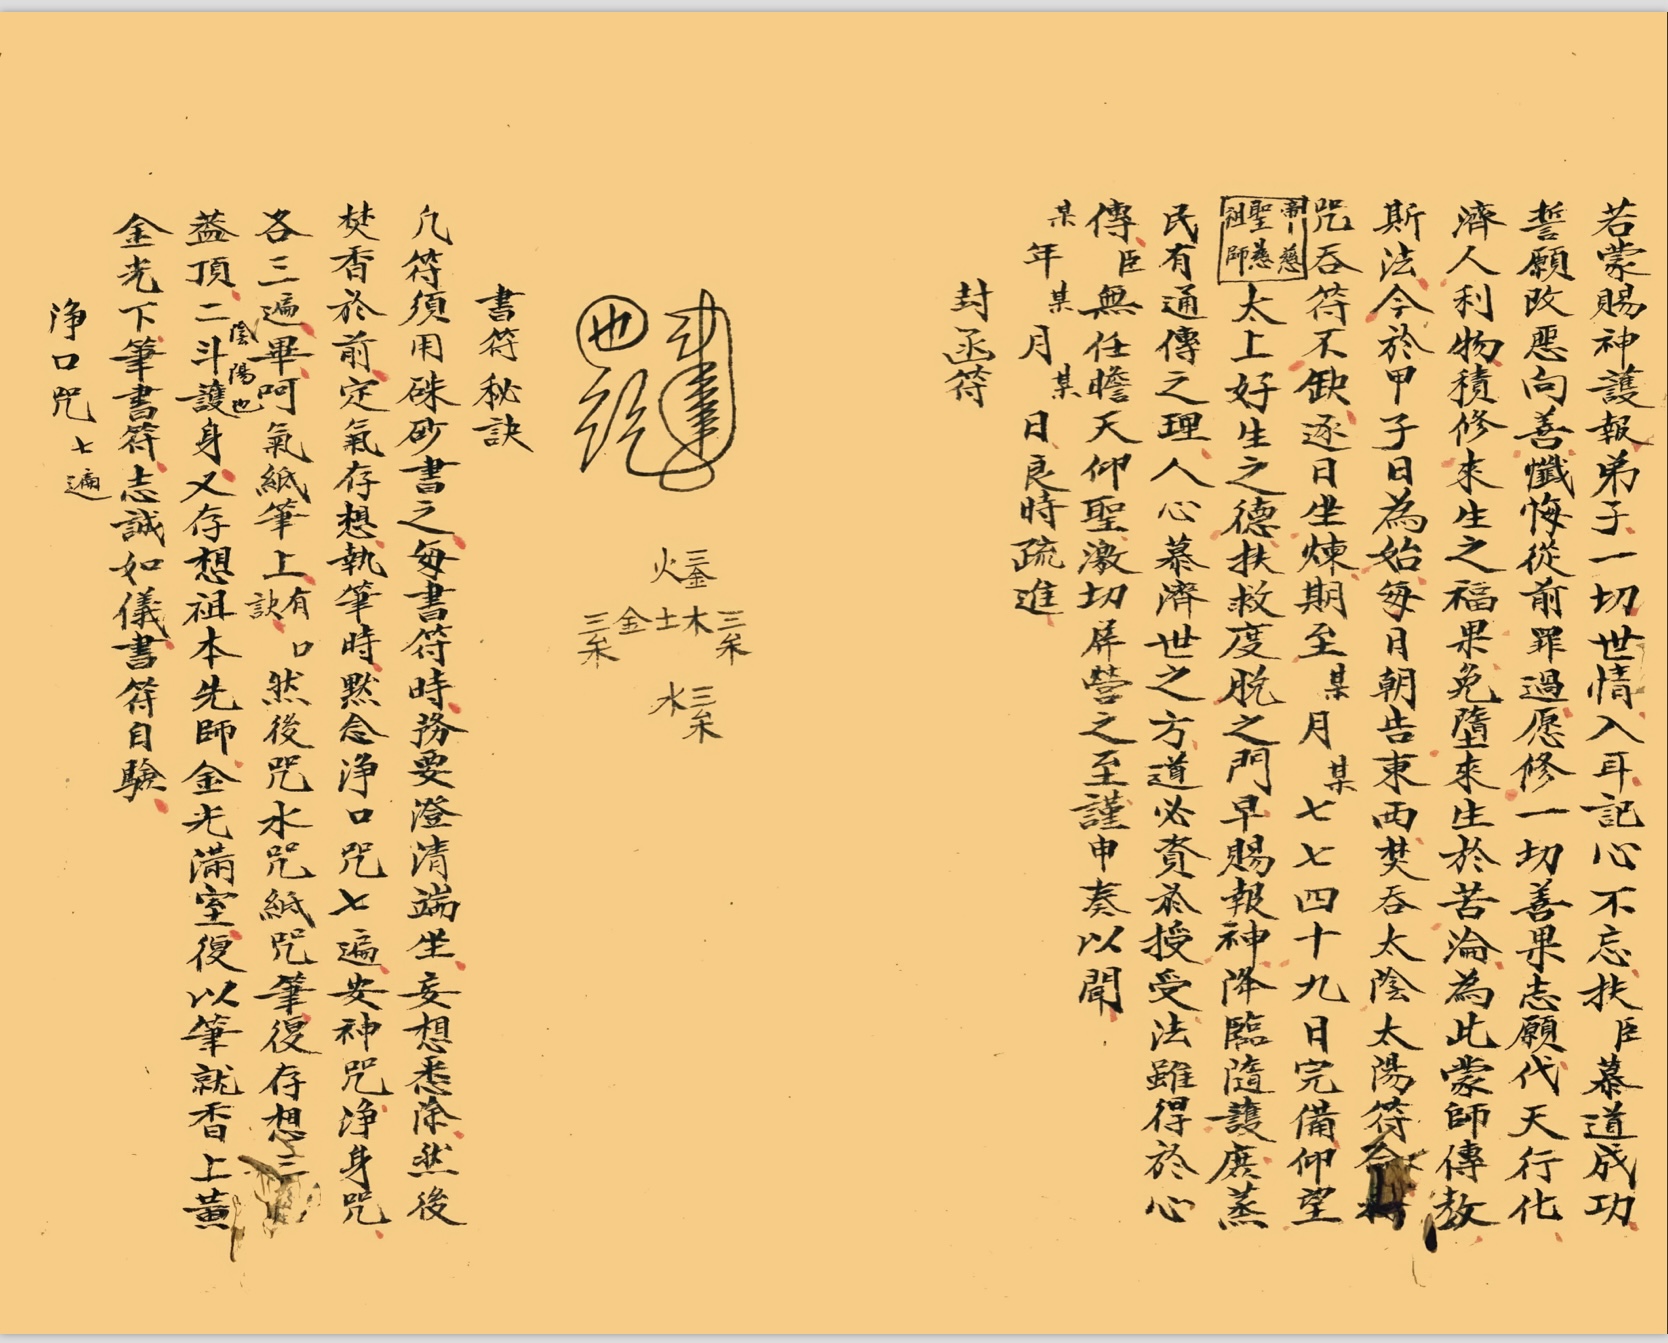 若蒙賜神護報弟子一切世情入耳記心不忘扶臣慕道成功
誓願改惡向善懺悔從前罪過愿修一切善果志願代天行化
濟人利物積修來生之福果免墮來生於苦淪為此蒙師傳教
斯法今於甲子日為始每月朝告東西焚吞太陰太陽符
咒吞符不缺逐日坐煉期至某月某七七四十九日完備仰望
慈
聖慈
祖師
太上好生之德扶救度脫之門早賜報神降臨隨護庶蒸
民有通傳之理人心慕濟世之方道必資於授受法雖得於心
傳臣無任瞻天仰聖激切屏營之至謹申奏以聞
某年某月某日良時疏進
封函符
三
火金
三木土金三
水三
書符秘訣
凡符須用硃砂書之每書符時務要澄清端坐妄想悉除然後
焚香於前定氣存想執筆時默念净口咒七遍安神咒净身咒
各三遍畢呵氣紙筆上有口訣然後咒水咒紙咒筆復存想三
蓋頂二斗陰陽也護身又存想祖本先師金光滿室復以筆就香上薰
金光下筆書符志誠如儀書符自驗
净口咒七遍